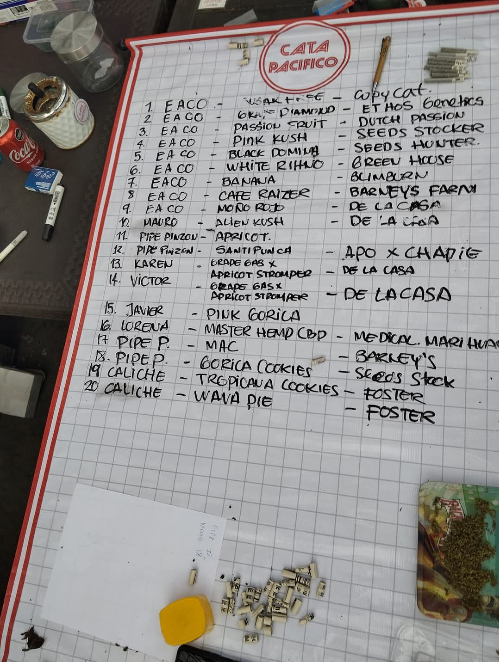 CATA
PACIFICO
1. EACO - - COPYCAT.
2 EACO - DIAMOND - ETHOS Genetics
3. EACO - PASSION FRUIT - DUTCH PASSION
4. EACO - PINK KUSH - SEEDS STOCKER
5. EACO - BLACK DOMINA - SEEDS HUNTER.
6. EACO - WHITE RIHNO - GREEN HOUSE
7. EACO - BANANA - BLIMBURN
8 EACO - CAFE RAIZER - BARNEYS FARM
9 EACO - MONO ROJO - DE LA CASA
10. MAURO - ALIEN KUSH - DE LA CASA
11. PIPE PINZON - APRICOT.
12. PIPE PINZON - SANTIPUNCA - APO X CHAPIE
13. KAREN - GRAPE GAS X
APRICOT STROMPER - DE LA CASA
14. VICTOR - GRAPE GAS X
APRICOT STROMPER - DE LA CASA
15. JAVIER - PINK GORICA
16. LORENA - MASTER HEMP CBD - MEDICAL MARIHUA
17 PIPE P. - MAC - BARNEY'S
18. PIPE P. - GORICA COOKIES - Seeds Stock
19 CALICHE - TROPICANA COOKIES - FOSTER
20 CALICHE - WAVA PIE - FOSTER
Coca-Cola